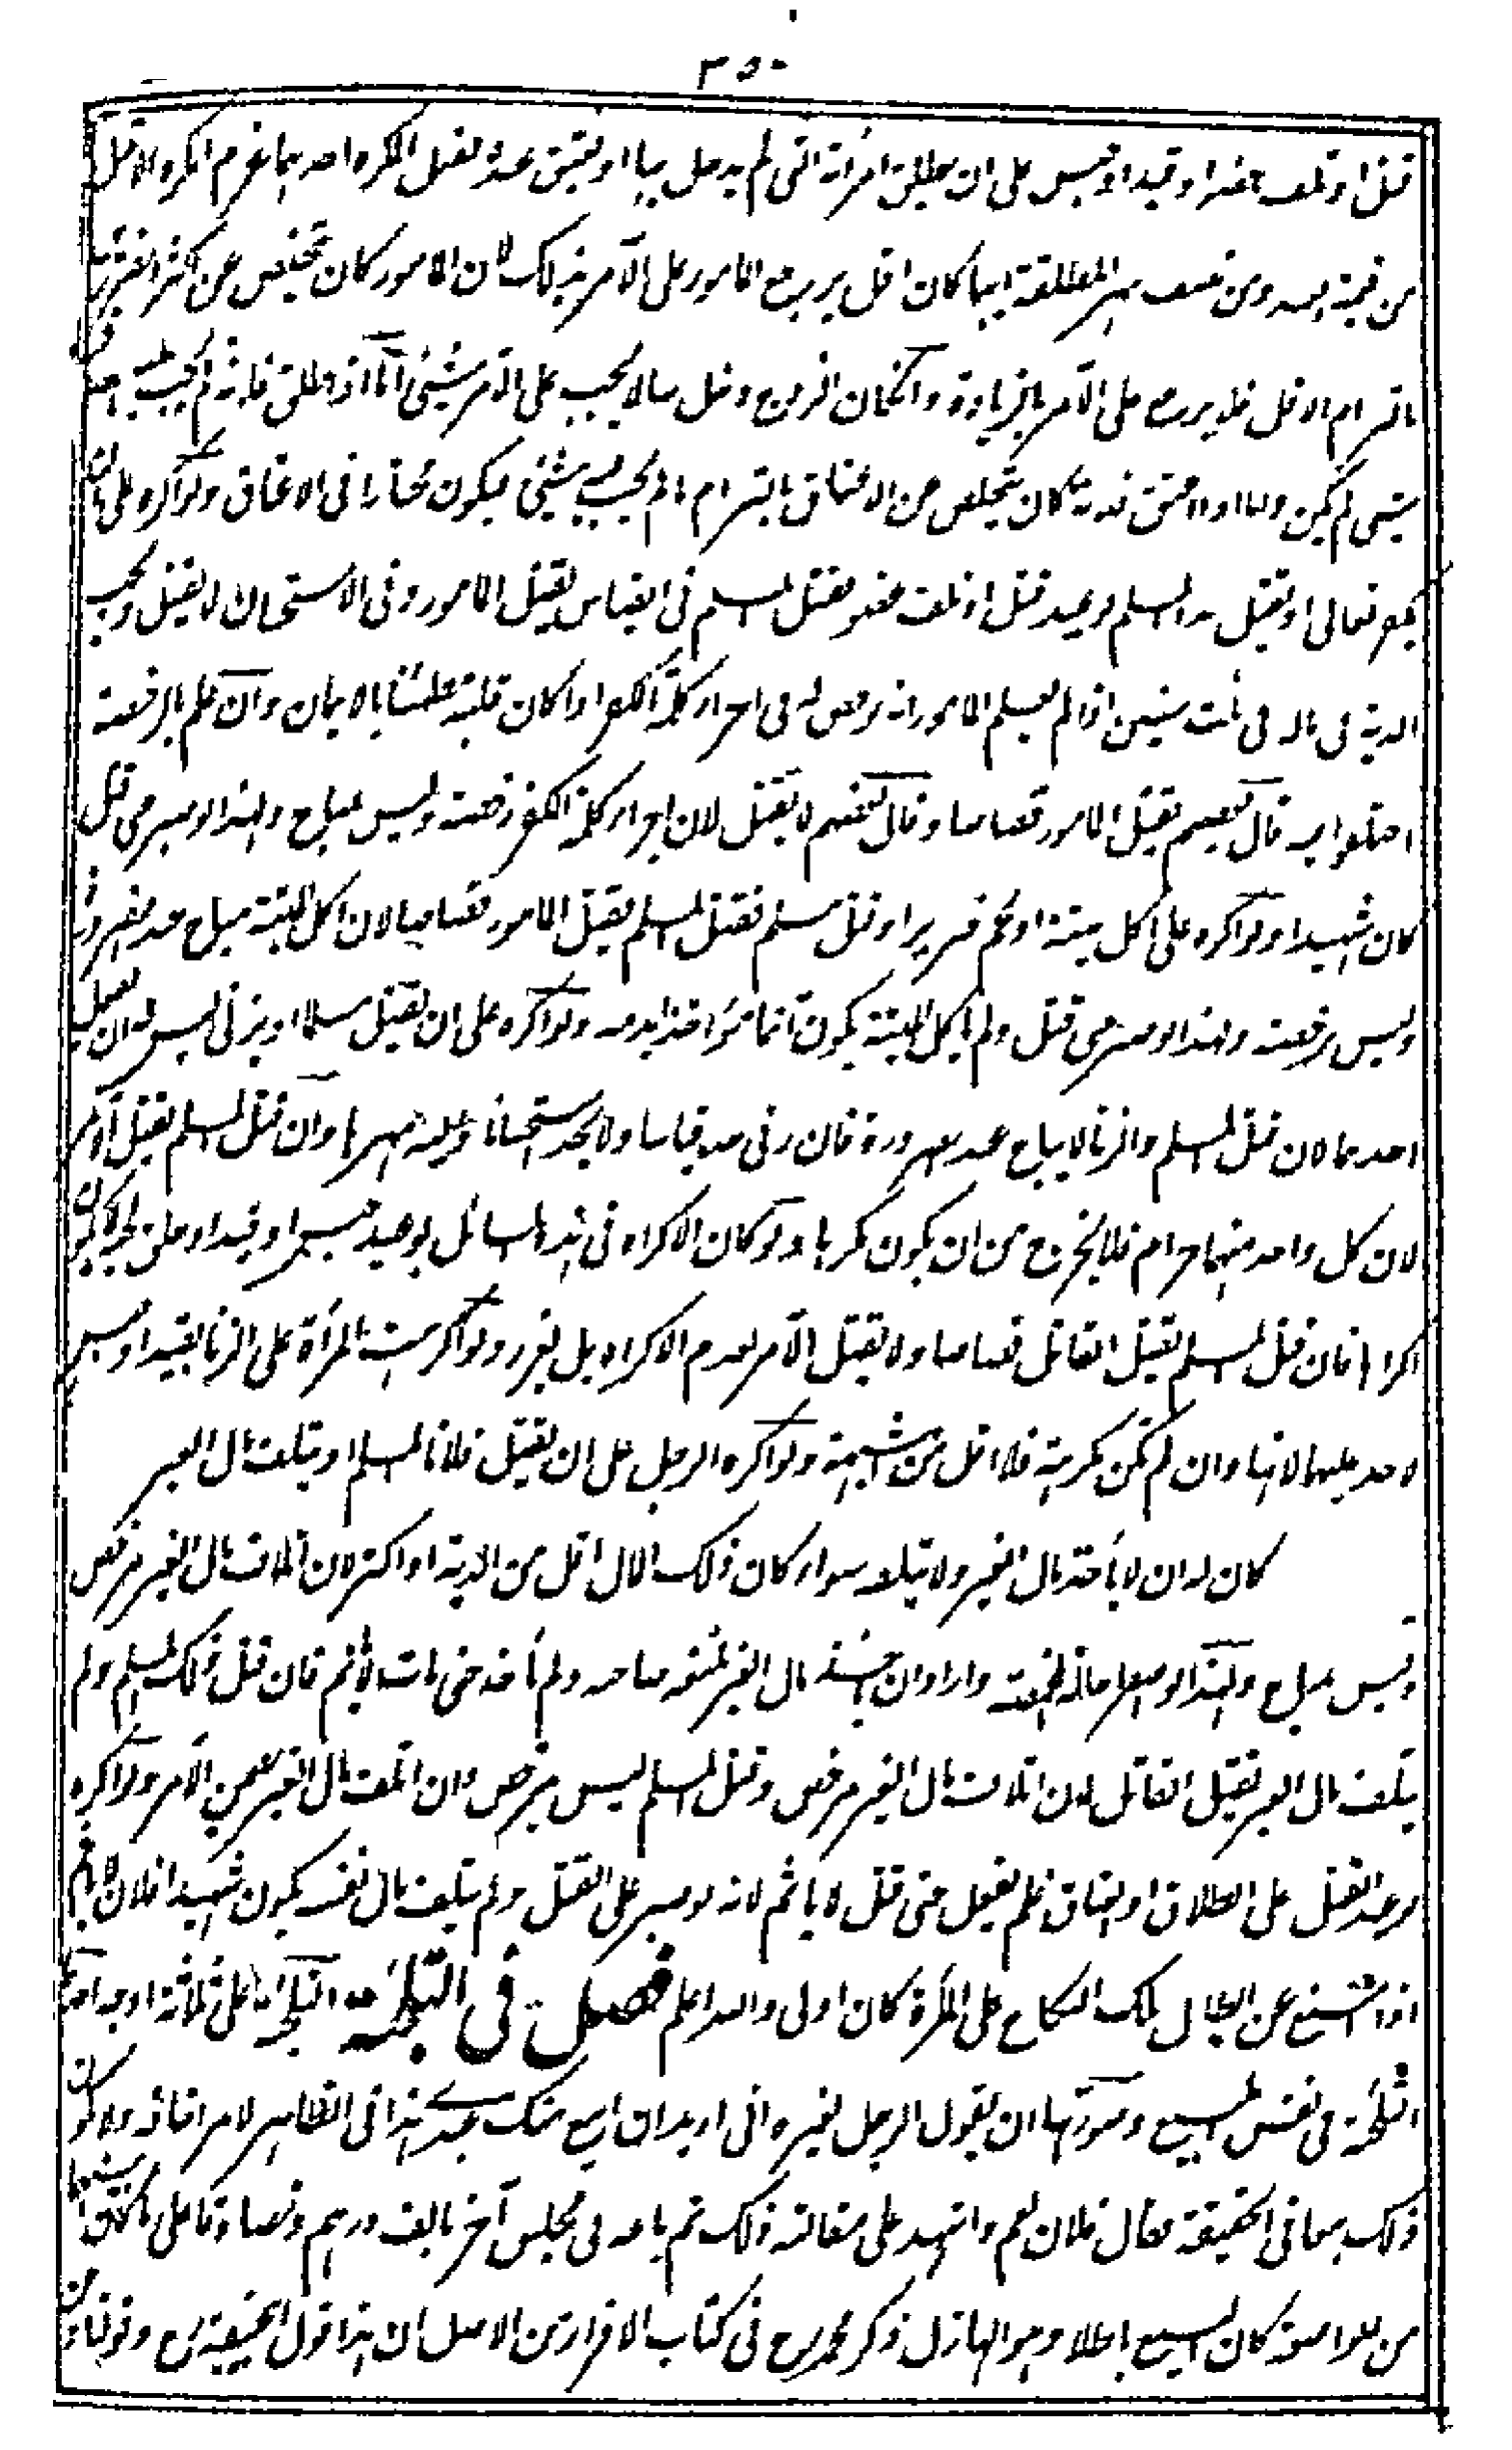 ٣٥٠
قتل او تلف عضو او قيد او حبس على ان يطلق امرأته التى لم يدخل بها او يعتق عبده ففعل المكره احدهما غرم المكره الاقل
من قيمة العبد ومن نصف مهر المطلقة ايهما كان اقل يرجع المامور على الآمر بذلك لان المامور كان يتخلص عن اكثر الضررين
بالتزام الاقل فلا يرجع على الآمر بالزيادة وان كان الزوج دخل بها لا يجب على الآمر شيئ اما اذا طلق فلانه لم يجب عليه
شيئ لم يكن واما اذا اعتق فلانه كان يتخلص عن الاعتاق بالتزام ما لم يجب عليه شيئ فيكون مختارا فى الاعتاق ولو اكره على ان
يكفر بالله تعالى او يقتل هذا المسلم بوعيد قتل او تلف عضو فقتل المسلم فى القياس يقتل المامور وفى الاستحسان لا يقتل ويجب
الدية فى ماله فى ثلث سنين اذا لم يعلم المامور انه يرخص له فى اجراء كلمة الكفر اذا كان قلبه مطمئنا بالايمان وان علم بالرخصة
اختلفوا فيه قال بعضهم يقتل المامور قصاصا وقال بعضهم لا يقتل لان اجراء كلمة الكفر رخصة وليس بمباح ولهذا لو صبر حتى قتل
كان شهيدا ولو اكره على اكل ميتة او لحم خنزير او قتل مسلم فقتل المسلم يقتل المامور قصاصا لان اكل الميتة مباح عند الضرورة
وليس برخصة ولهذا لو صبر حتى قتل ولم ياكل الميتة يكون آثما مؤاخذا بدمه ولو اكره على ان يقتل مسلما او يزنى ليس له ان يفعل
احدهما لان قتل المسلم والزنا لا يباح عند الضرورة فان زنى حد قياسا ولا يحد استحسانا وعليه مهرها وان قتل المسلم يقتل الآمر
لان كل واحد منهما حرام فلا يخرج من ان يكون مكرها ولو كان الاكراه فى هذه المسائل بوعيد حبس او قيد او حلق لحية لا يكون
اكراها فان قتل المسلم يقتل القاتل قصاصا ولا يقتل الآمر لعدم الاكراه بل يعزر ولو اكرهت المرأة على الزنا بقيد او حبس
لا حد عليها لانها وان لم تكن مكرهة فلا اقل من شبهة ولو اكره الرجل على ان يقتل فلانا المسلم او يتلف مال الغير
كان له ان لا يأخذ مال الغير ولا يتلفه سواء كان ذلك المال اقل من الدية او اكثر لان اتلاف مال الغير مرخص
وليس بمباح ولهذا لو اصابته مخمصة واراد ان ياخذ مال الغير فمنعه صاحبه ولم ياخذ حتى مات لا يأثم فان قتل ذلك المسلم ولم
يتلف مال الغير يقتل القاتل لان اتلاف مال الغير مرخص وقتل المسلم ليس بمرخص وان اتلف مال الغير ضمن الآمر ولو اكره
بوعيد القتل على الطلاق او العتاق فلم يفعل حتى قتل لا ياثم لانه لو صبر على القتل ولم يتلف مال نفسه يكون شهيدا فلان لا ياثم
اذا امتنع عن ابطال ملك النكاح على المرأة كان اولى والله اعلم فصل فى التلجئة التلجئة على ثلاثة اوجه احدها
التلجئة فى نفس البيع وصورتها ان يقول الرجل لغيره انى اريد ان ابيع منك عبدى هذا فى الظاهر لامر اخافه ولا يكون
ذلك بيعا فى الحقيقة فقال فلان نعم واشهد على مقالته ذلك ثم باعه فى مجلس آخر بالف درهم وتصادقا على ما كان بينهما
من المواضعة كان البيع باطلا وهو الهازل ذكر محمد رح فى كتاب الاقرار من الاصل ان هذا قول ابى حنيفة رح وقولنا